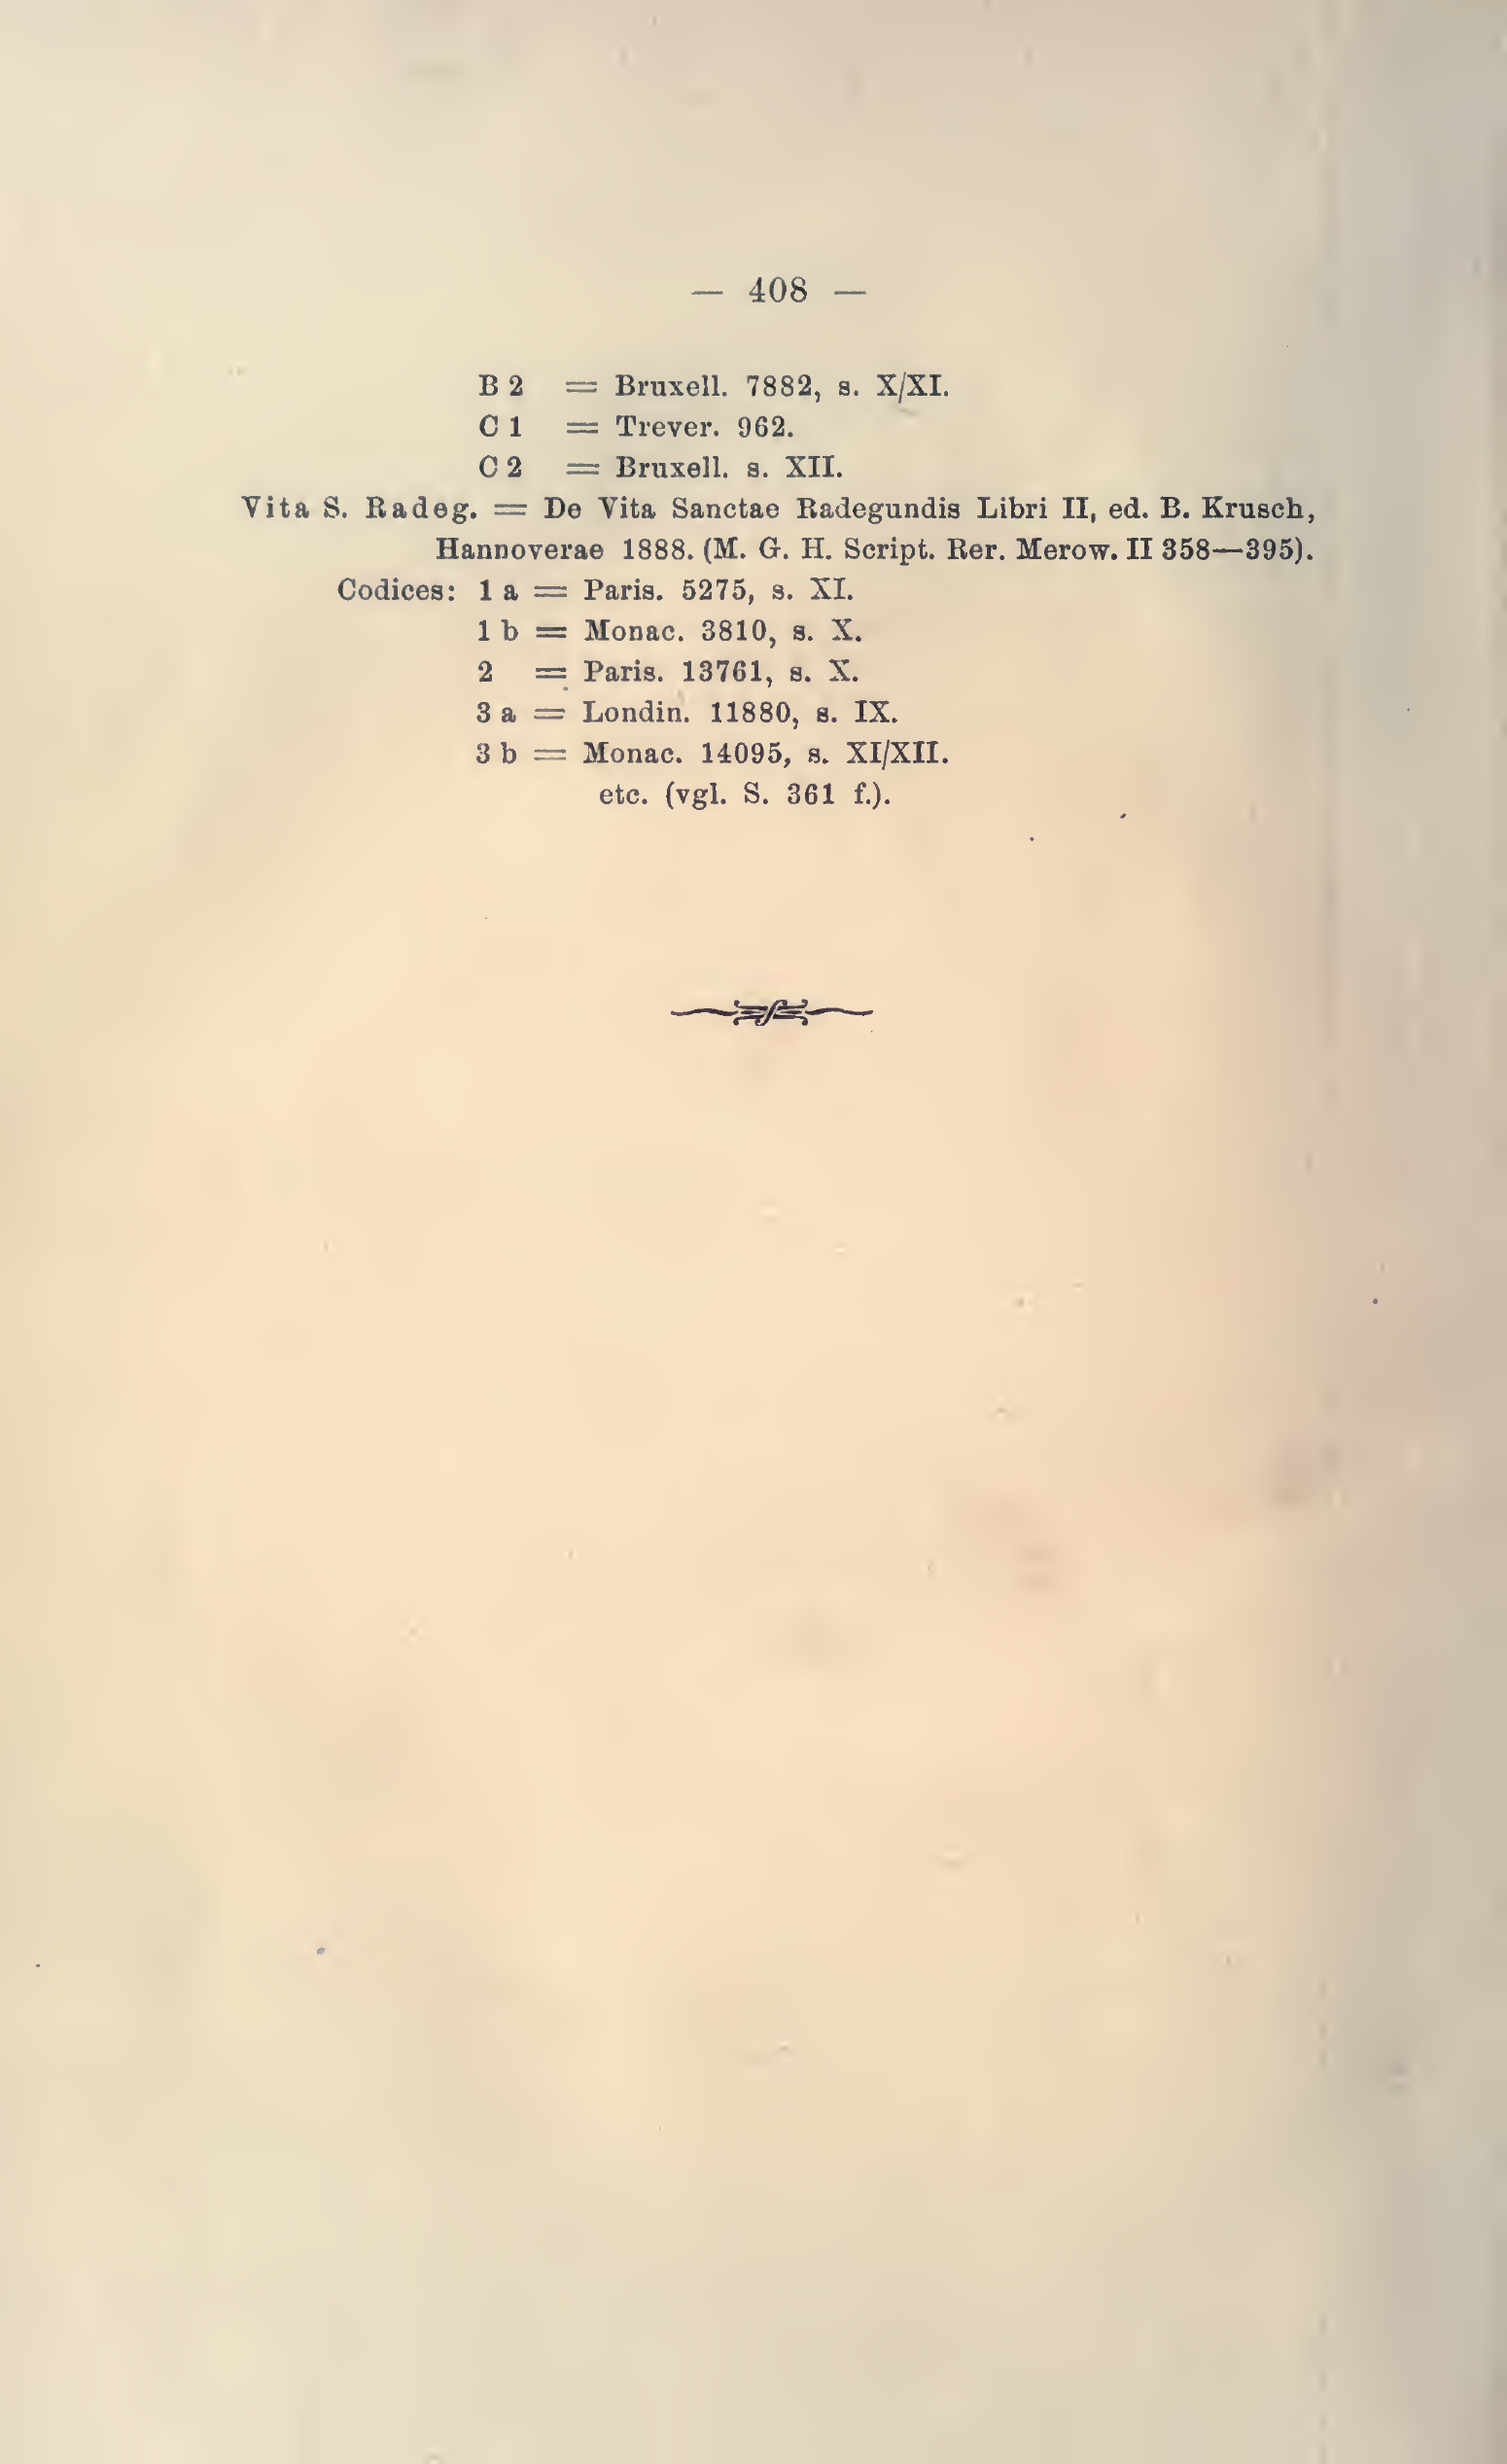 — 408 —
B 2 = Bruxell. 7882, s. X/XI.
C 1 = Trever. 962.
C 2 = Bruxell. s. XII.
Vita S. Radeg. = De Vita Sanctae Radegundis Libri II, ed. B. Krusch,
Hannoverae 1888. (M. G. H. Script. Rer. Merow. II 358—395).
Codices: 1 a = Paris. 5275, s. XI.
1 b = Monac. 3810, s. X.
2 = Paris. 13761, s. X.
3 a = Londin. 11880, s. IX.
3 b = Monac. 14095, s. XI/XII.
etc. (vgl. S. 361 f.).